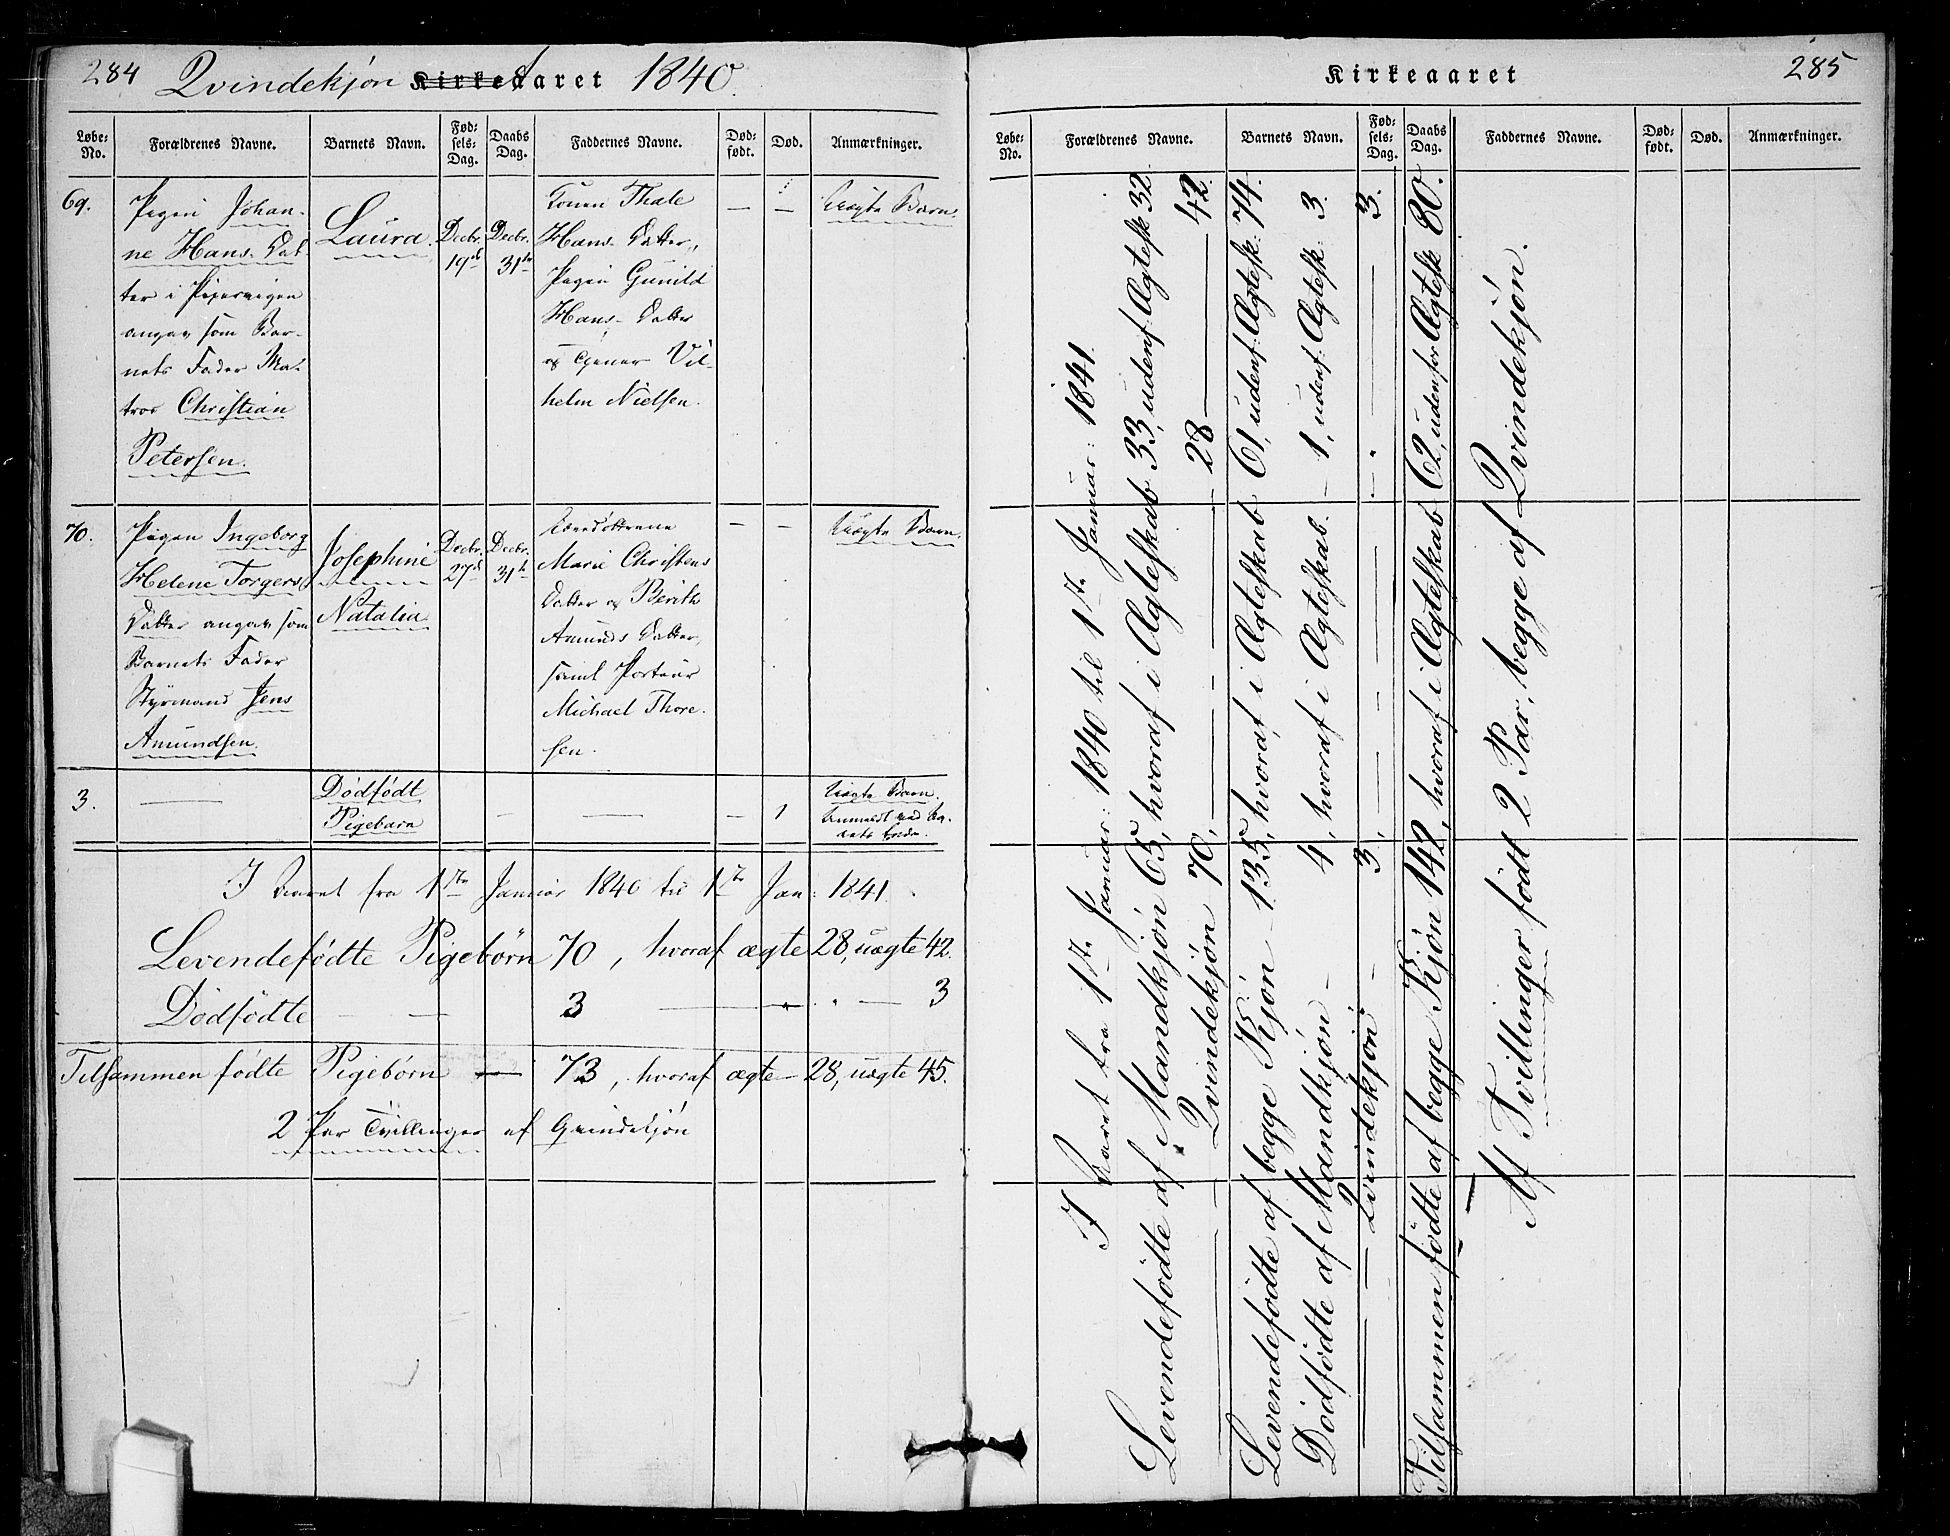 284 Qvindekjøn Kirkeaaret 1840.
Løbe-No. Forældrenes Navne. Barnets Navn. Fødsels-Dag. Daabs Dag. Faddernes Navne. Død-født. Død. Anmærkninger.
69.
Pigen Johan-
ne Hans-Dat-
ter i Pipervigen
angav som Bar-
nets Fader Ma-
tros Christian
Petersen.
Laura.
Decbr.
19de
Decbr.
31te
Konen Thale
Hans-Datter,
Pigen Gunild
Hans-Datter
og Tjener Vil-
helm Nielsen.
— —
Uægte Barn.
70.
Pigen Ingeborg
Helene Torgers
Datter angav som
Barnets Fader
Styrmand Jens
Amundsen.
Josephine
Natalia
Decbr.
27de
Decbr.
31te
Marie Christens
Datter og Berith
Amunds Datter,
samt Porteur
Michael Thore-
sen.
— —
Uægte Barn.
3.
—
Dødfødt
Pigebarn
— — — — 1
Uægte Barn.
I Aaret fra 1ste Januar 1840 til 1ste Jan: 1841.
Levendefødte Pigebørn 70, hvoraf ægte 28, uægte 42.
Dødfødte — — 3 — " — 3
Tilsammen fødte Pigebørn — 73, hvoraf ægte — 28, uægte 45.
2 Par Tvillinger af Qvindekjøn
Kirkeaaret 285
Løbe-No. Forældrenes Navne. Barnets Navn. Fødsels-Dag. Daabs Dag. Faddernes Navne. Død-født. Død. Anmærkninger.
I Aaret fra 1ste Januar: 1840 til 1ste Januar: 1841.
Levendefødte af Mandkjøn 65, hvoraf i Ægteskab 33, udenf: Ægtesk 32.
— — " Qvindekjøn 70, — — — 28 — 42.
Levendefødte af begge Kjøn — 135, hvoraf i Ægteskab 61, udenf: Ægtesk: 74.
Dødfødte af Mandkjøn — 4, hvoraf i Ægteskab. — 1, udenf: Ægtesk: 3.
— — Qvindekjøn — 3, — — — " — 3.
Tilsammen fødte af begge Kjøn 142, hvoraf i Ægteskab 62, udenfor Ægtesk 80.
Af Tvillinger født 2 Par, begge af Qvindekjøn.